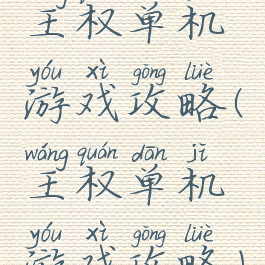 王权单机
yóu xì gōng lüè
游戏攻略(
wáng quán dān jī
王权单机
yóu xì gōng lüè
游戏攻略)